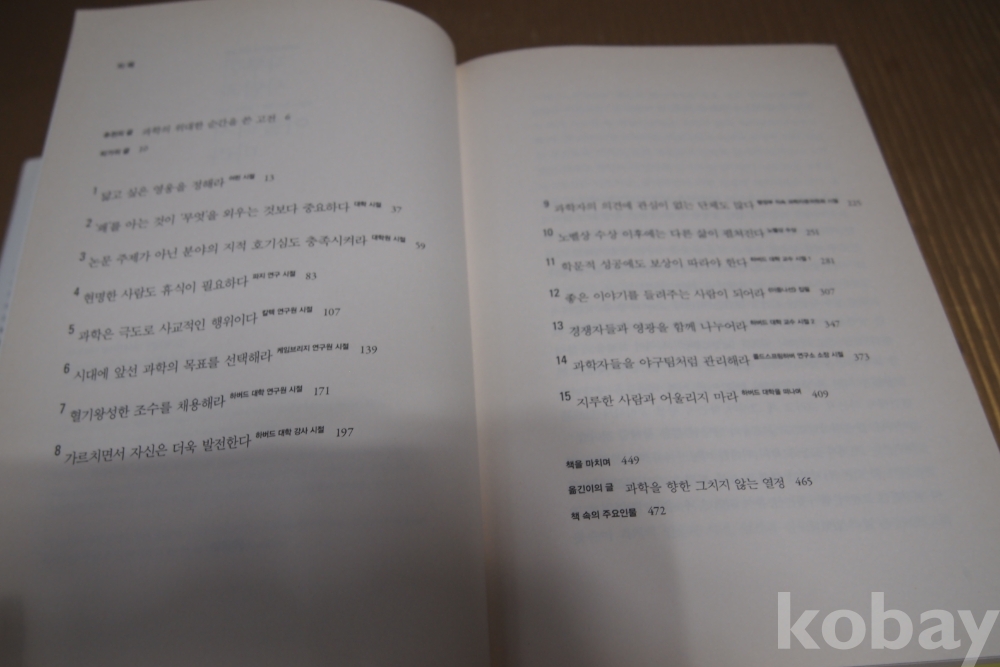 차례
추천의 글 과학의 위대한 순간을 쓴 고전 6
작가의 글
1 닮고 싶은 영웅을 정해라 어린 시절 13
2 '왜'를 아는 것이 '무엇'을 외우는 것보다 중요하다 대학 시절 37
3 논문 주제가 아닌 분야의 지적 호기심도 충족시켜라 대학원 시절 59
4 현명한 사람도 휴식이 필요하다 파지 연구 시절 83
5 과학은 극도로 사교적인 행위이다 칼텍 연구원 시절 107
6 시대에 앞선 과학의 목표를 선택해라 케임브리지 연구원 시절 139
7 혈기왕성한 조수를 채용해라 하버드 대학 연구원 시절 171
8 가르치면서 자신은 더욱 발전한다 하버드 대학 강사 시절 197
9 과학자의 의견에 관심이 없는 단체도 많다 시절 225
10 노벨상 수상 이후에는 다른 삶이 펼쳐진다 노벨상 수상 251
11 학문적 성공에도 보상이 따라야 한다 하버드 대학 교수 시절 1 281
12 좋은 이야기를 들려주는 사람이 되어라 307
13 경쟁자들과 영광을 함께 나누어라 하버드 대학 교수 시절 2 347
14 과학자들을 야구팀처럼 관리해라 콜드스프링하버 연구소 소장 시절 373
15 지루한 사람과 어울리지 마라 하버드 대학을 떠나며 409
책을 마치며 449
옮긴이의 글 과학을 향한 그치지 않는 열정 465
책 속의 주요인물 472
kobay